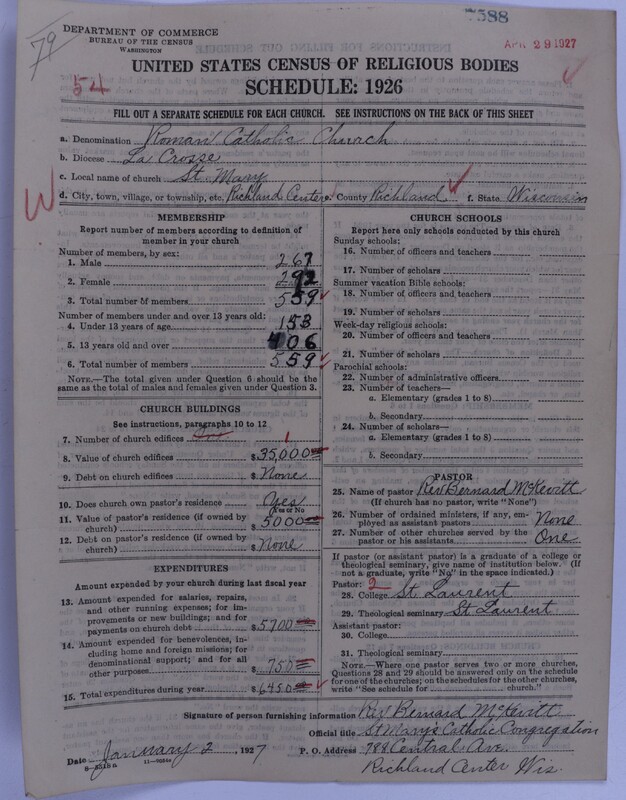 7588
79
DEPARTMENT OF COMMERCE
BUREAU OF THE CENSUS
WASHINGTON
APR 29 1927
UNITED STATES CENSUS OF RELIGIOUS BODIES
54
SCHEDULE: 1926
FILL OUT A SEPARATE SCHEDULE FOR EACH CHURCH. SEE INSTRUCTIONS ON THE BACK OF THIS SHEET
a. Denomination Roman Catholic Church
b. Diocese La Crosse
c. Local name of church St. Mary
W
d. City, town, village, or township, etc. Richland Center e. County Richland f. State Wisconsin
MEMBERSHIP
Report number of members according to definition of
member in your church
Number of members, by sex:
1. Male 267
2. Female 292
3. Total number of members 559
Number of members under and over 13 years old:
4. Under 13 years of age 153
5. 13 years old and over 406
6. Total number of members 559
NOTE.—The total given under Question 6 should be
same as the total of males and females given under Question 3.
CHURCH BUILDINGS
See instructions, paragraphs 10 to 12
7. Number of church edifices One 1
8. Value of church edifices $35,000
9. Debt on church edifices $ None
10. Does church own pastor's residence Yes
(Yes or No
11. Value of pastor's residence (if owned by
church) $5000
12. Debt on pastor's residence (if owned by
church) $ None
EXPENDITURES
Amount expended by your church during last fiscal year
13. Amount expended for salaries, repairs,
and other running expenses; for im-
provements or new buildings; and for
payments on church debt $5700
14. Amount expended for benevolences, in-
cluding home and foreign missions; for
denominational support; and for all
other purposes $750
15. Total expenditures during year $6450
CHURCH SCHOOLS
Report here only schools conducted by this church
Sunday schools:
16. Number of officers and teachers
17. Number of scholars
Summer vacation Bible schools:
18. Number of officers and teachers
19. Number of scholars
Week-day religious schools:
20. Number of officers and teachers
21. Number of scholars
Parochial schools:
22. Number of administrative officers
23. Number of teachers—
a. Elementary (grades 1 to 8)
b. Secondary
24. Number of scholars—
a. Elementary (grades 1 to 8)
b. Secondary
PASTOR
25. Name of pastor Rev Bernard McKevitt
(If church has no pastor, write "None")
26. Number of ordained ministers, if any, em-
ployed as assistant pastors None
27. Number of other churches served by the
pastor or his assistants One
If pastor (or assistant pastor) is a graduate of a college or
theological seminary, give name of institution below. (If
not a graduate, write "No" in the space indicated.)
Pastor: 2
28. College St Laurent
29. Theological seminary St Laurent
Assistant pastor:
30. College
31. Theological seminary
NOTE.—Where one pastor serves two or more churches,
Questions 28 and 29 should be answered only on the schedule
for one of the churches; on the schedules for the other churches,
write "See schedule for church."
Signature of person furnishing information Rev Bernard McKevitt
Official title St Marys Catholic Congregation
Date January 2, 1927 P. O. Address 788 Central Ave.
Richland Center Wis.